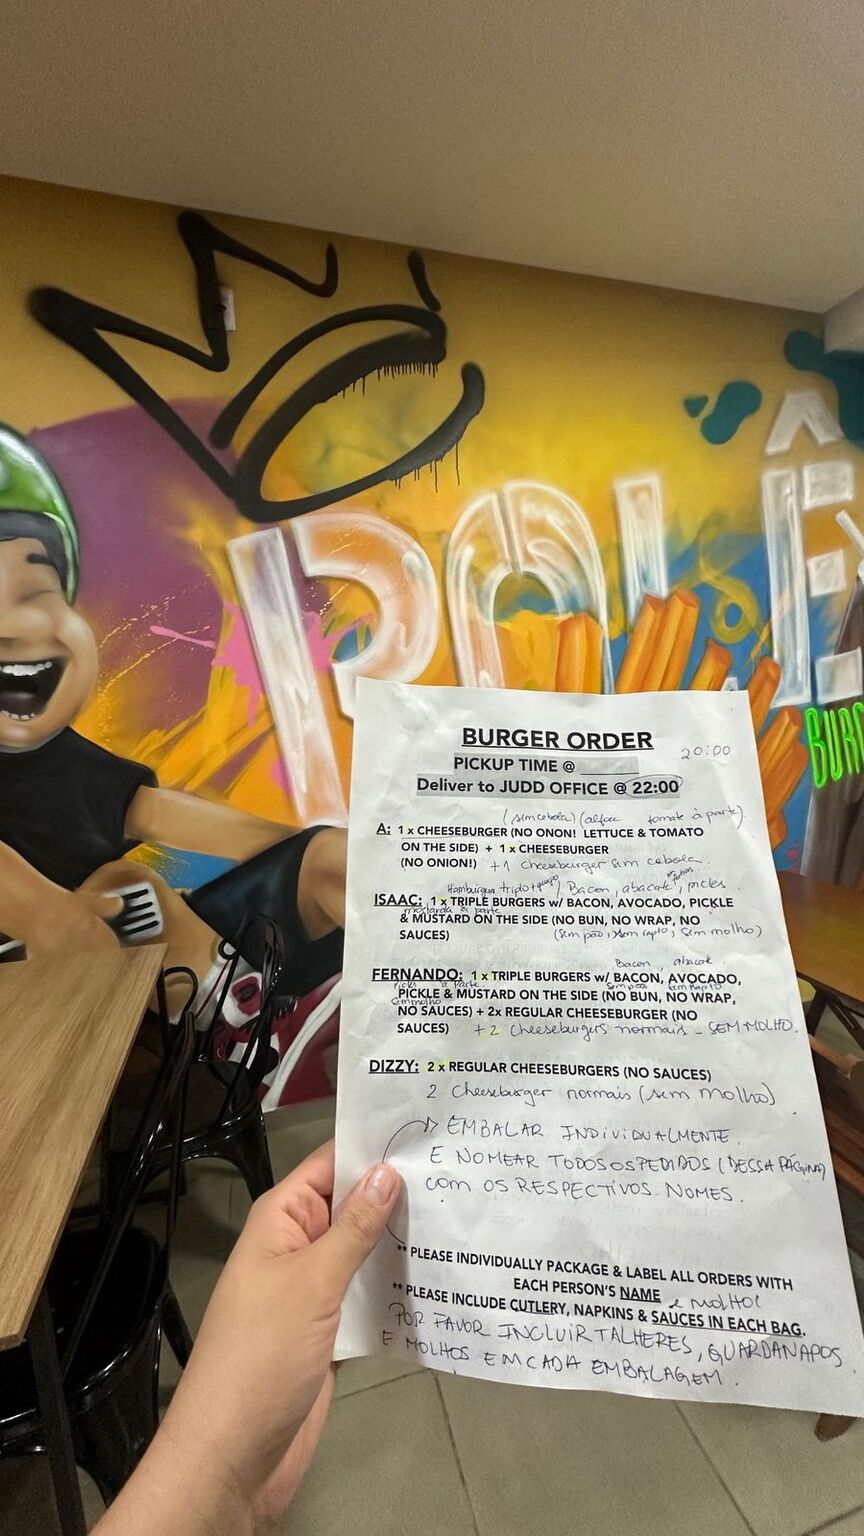 ROLÊ
BURG
BURGER ORDER
20:00
PICKUP TIME @ ______
Deliver to JUDD OFFICE @ 22:00
(sem cebola) (alface tomate à parte)
A: 1 x CHEESEBURGER (NO ONON! LETTUCE & TOMATO
ON THE SIDE) + 1 x CHEESEBURGER
(NO ONION!) +1 cheeseburger sem cebola.
Hamburguer triplo + queijo / Bacon, abacate, picles
ISAAC: 1 x TRIPLE BURGERS w/ BACON, AVOCADO, PICKLE
mostarda à parte
& MUSTARD ON THE SIDE (NO BUN, NO WRAP, NO
SAUCES) (sem pão, sem rapto, sem molho)
Bacon, abacate
FERNANDO: 1 x TRIPLE BURGERS w/ BACON, AVOCADO,
picles à parte sem pão sem rapto
PICKLE & MUSTARD ON THE SIDE (NO BUN, NO WRAP,
sem molho
NO SAUCES) + 2x REGULAR CHEESEBURGER (NO
SAUCES) + 2 cheeseburgers normais - SEM MOLHO.
DIZZY: 2 x REGULAR CHEESEBURGERS (NO SAUCES)
2 Cheeseburger normais (sem molho)
EMBALAR INDIVIDUALMENTE
E NOMEAR TODOS OS PEDIDOS (DESSA PÁGINA)
COM OS RESPECTIVOS NOMES.
** PLEASE INDIVIDUALLY PACKAGE & LABEL ALL ORDERS WITH
EACH PERSON'S NAME e molho!
** PLEASE INCLUDE CUTLERY, NAPKINS & SAUCES IN EACH BAG.
POR FAVOR INCLUIR TALHERES, GUARDANAPOS
E MOLHOS EM CADA EMBALAGEM.